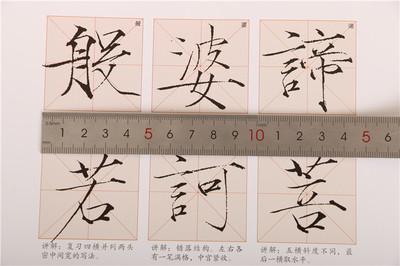 般 婆 諦
1 2 3 4 5 6 7 8 9 10 1 2 3 4 5 6
若 訶 菩
讲解：复习四横并列两头
密中间宽的写法。
讲解：错落结构。左右各
有一笔满格，中宫紧收。
讲解：五横斜度不同，最
后一横取水平。